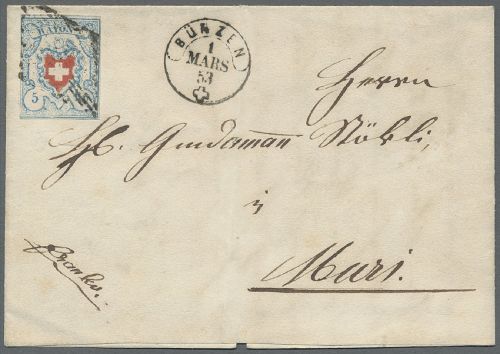 RAYON
5
BÜNZEN
1
MARS
53
Herrn
Hl. Gendaman Stökli,
in
Muri.
Franko.